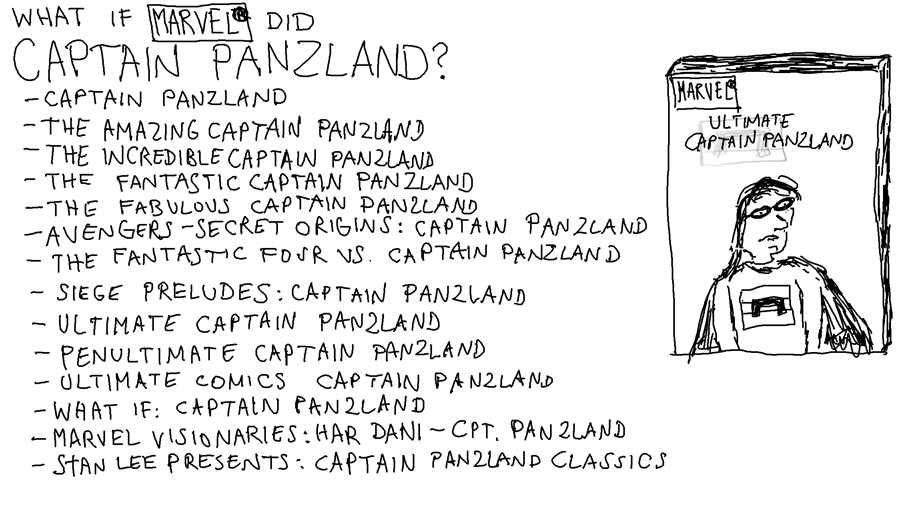 WHAT IF MARVEL® DID
CAPTAIN PANZLAND?
- CAPTAIN PANZLAND
- THE AMAZING CAPTAIN PANZLAND
- THE INCREDIBLE CAPTAIN PANZLAND
- THE FANTASTIC CAPTAIN PANZLAND
- THE FABULOUS CAPTAIN PANZLAND
- AVENGERS - SECRET ORIGINS: CAPTAIN PANZLAND
- THE FANTASTIC FOUR VS. CAPTAIN PANZLAND
- SIEGE PRELUDES: CAPTAIN PANZLAND
- ULTIMATE CAPTAIN PANZLAND
- PENULTIMATE CAPTAIN PANZLAND
- ULTIMATE COMICS CAPTAIN PANZLAND
- WHAT IF: CAPTAIN PANZLAND
- MARVEL VISIONARIES: HAR DANI - CPT. PANZLAND
- STAN LEE PRESENTS: CAPTAIN PANZLAND CLASSICS
MARVEL®
ULTIMATE
CAPTAIN PANZLAND